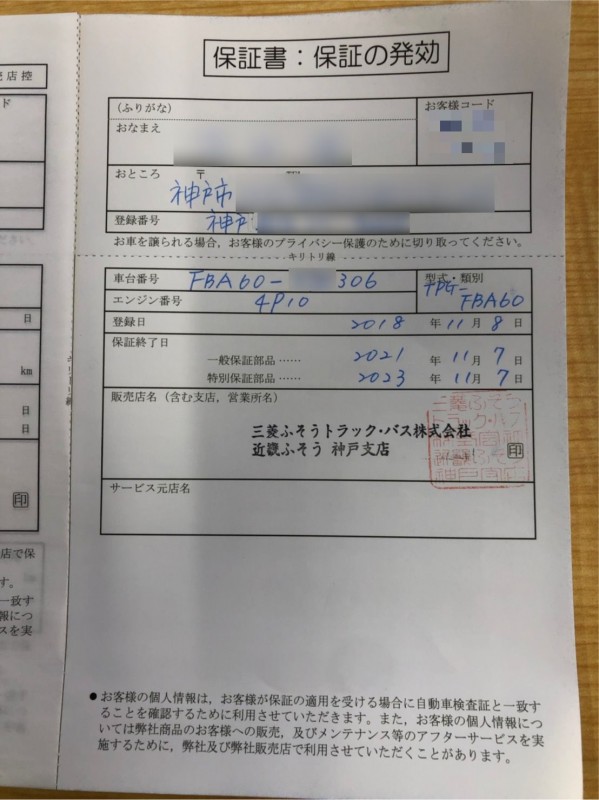 保証書：保証の発効
(ふりがな)
お客様コード
おなまえ
おところ 〒
神戸市
登録番号 神戸
お車を譲られる場合，お客様のプライバシー保護のために切り取ってください。
キリトリ線
車台番号 FBA60- 306
型式・類別
TPG-
FBA60
エンジン番号 4P10
登録日 2018 年 11 月 8 日
保証終了日
一般保証部品 …… 2021 年 11 月 7 日
特別保証部品 …… 2023 年 11 月 7 日
販売店名（含む支店，営業所名）
三菱ふそうトラック・バス株式会社
近畿ふそう 神戸支店
印
サービス元店名
●お客様の個人情報は，お客様が保証の適用を受ける場合に自動車検査証と一致す
ることを確認するために利用させていただきます。また，お客様の個人情報につ
いては弊社商品のお客様への販売，及びメンテナンス等のアフターサービスを実
施するために，弊社及び弊社販売店で利用させていただくことがあります。
売店控
ド
ださい。
日
km
日
日
印
店で保
す。
一致す
報につ
スを実